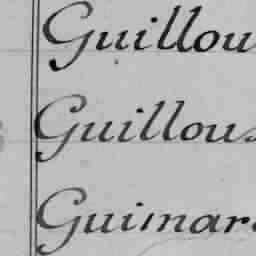 Guillou
Guillous
Guimar